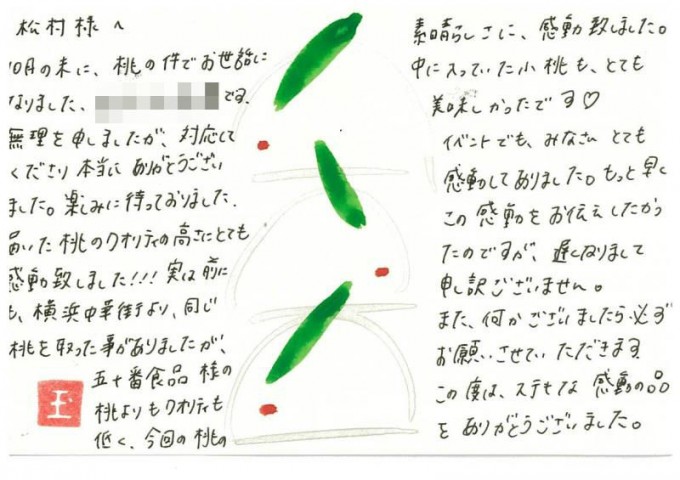 松村様へ
10月の末に、桃の件でお世話に
なりました、
です。
無理を申しましたが、対応して
くださり本当にありがとうござい
ました。楽しみに待っておりました。
届いた桃のクオリティの高さにとても
感動致しました!!!実は前に
も、横浜中華街より、同じ
桃を取った事がありましたが、
五十番食品様の
桃よりもクオリティも
低く、今回の桃の
玉
素晴らしさに、感動致しました。
中に入っていた小桃も、とても
美味しかったです♡
イベントでも、みなさんとても
感動してありました。もっと早く
この感動をお伝えしたかっ
たのですが、遅くなりまして
申し訳ございません。
また、何かございましたら必ず
お願いさせていただきます。
この度は、ステキな感動の品
をありがとうございました。